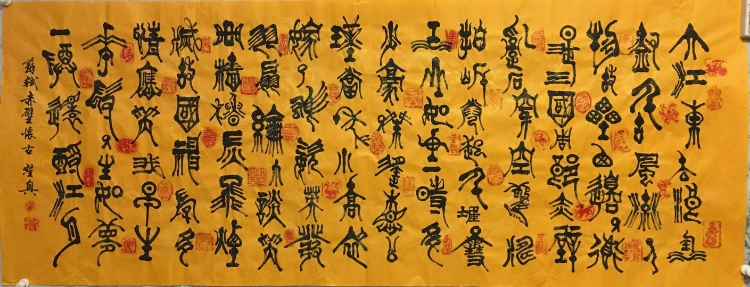 大江東去浪淘
盡千古風流人
物故壘西邊人道
是三國周郎赤壁
亂石穿空驚濤
拍岸卷起千堆雪
江山如畫一時多
少豪傑遙想公
瑾當年小喬初
嫁了雄姿英發
羽扇綸巾談笑
間檣櫓灰飛煙
滅故國神游多
情應笑我早生
華髮人生如夢
一尊還酹江月
蘇軾赤壁懷古